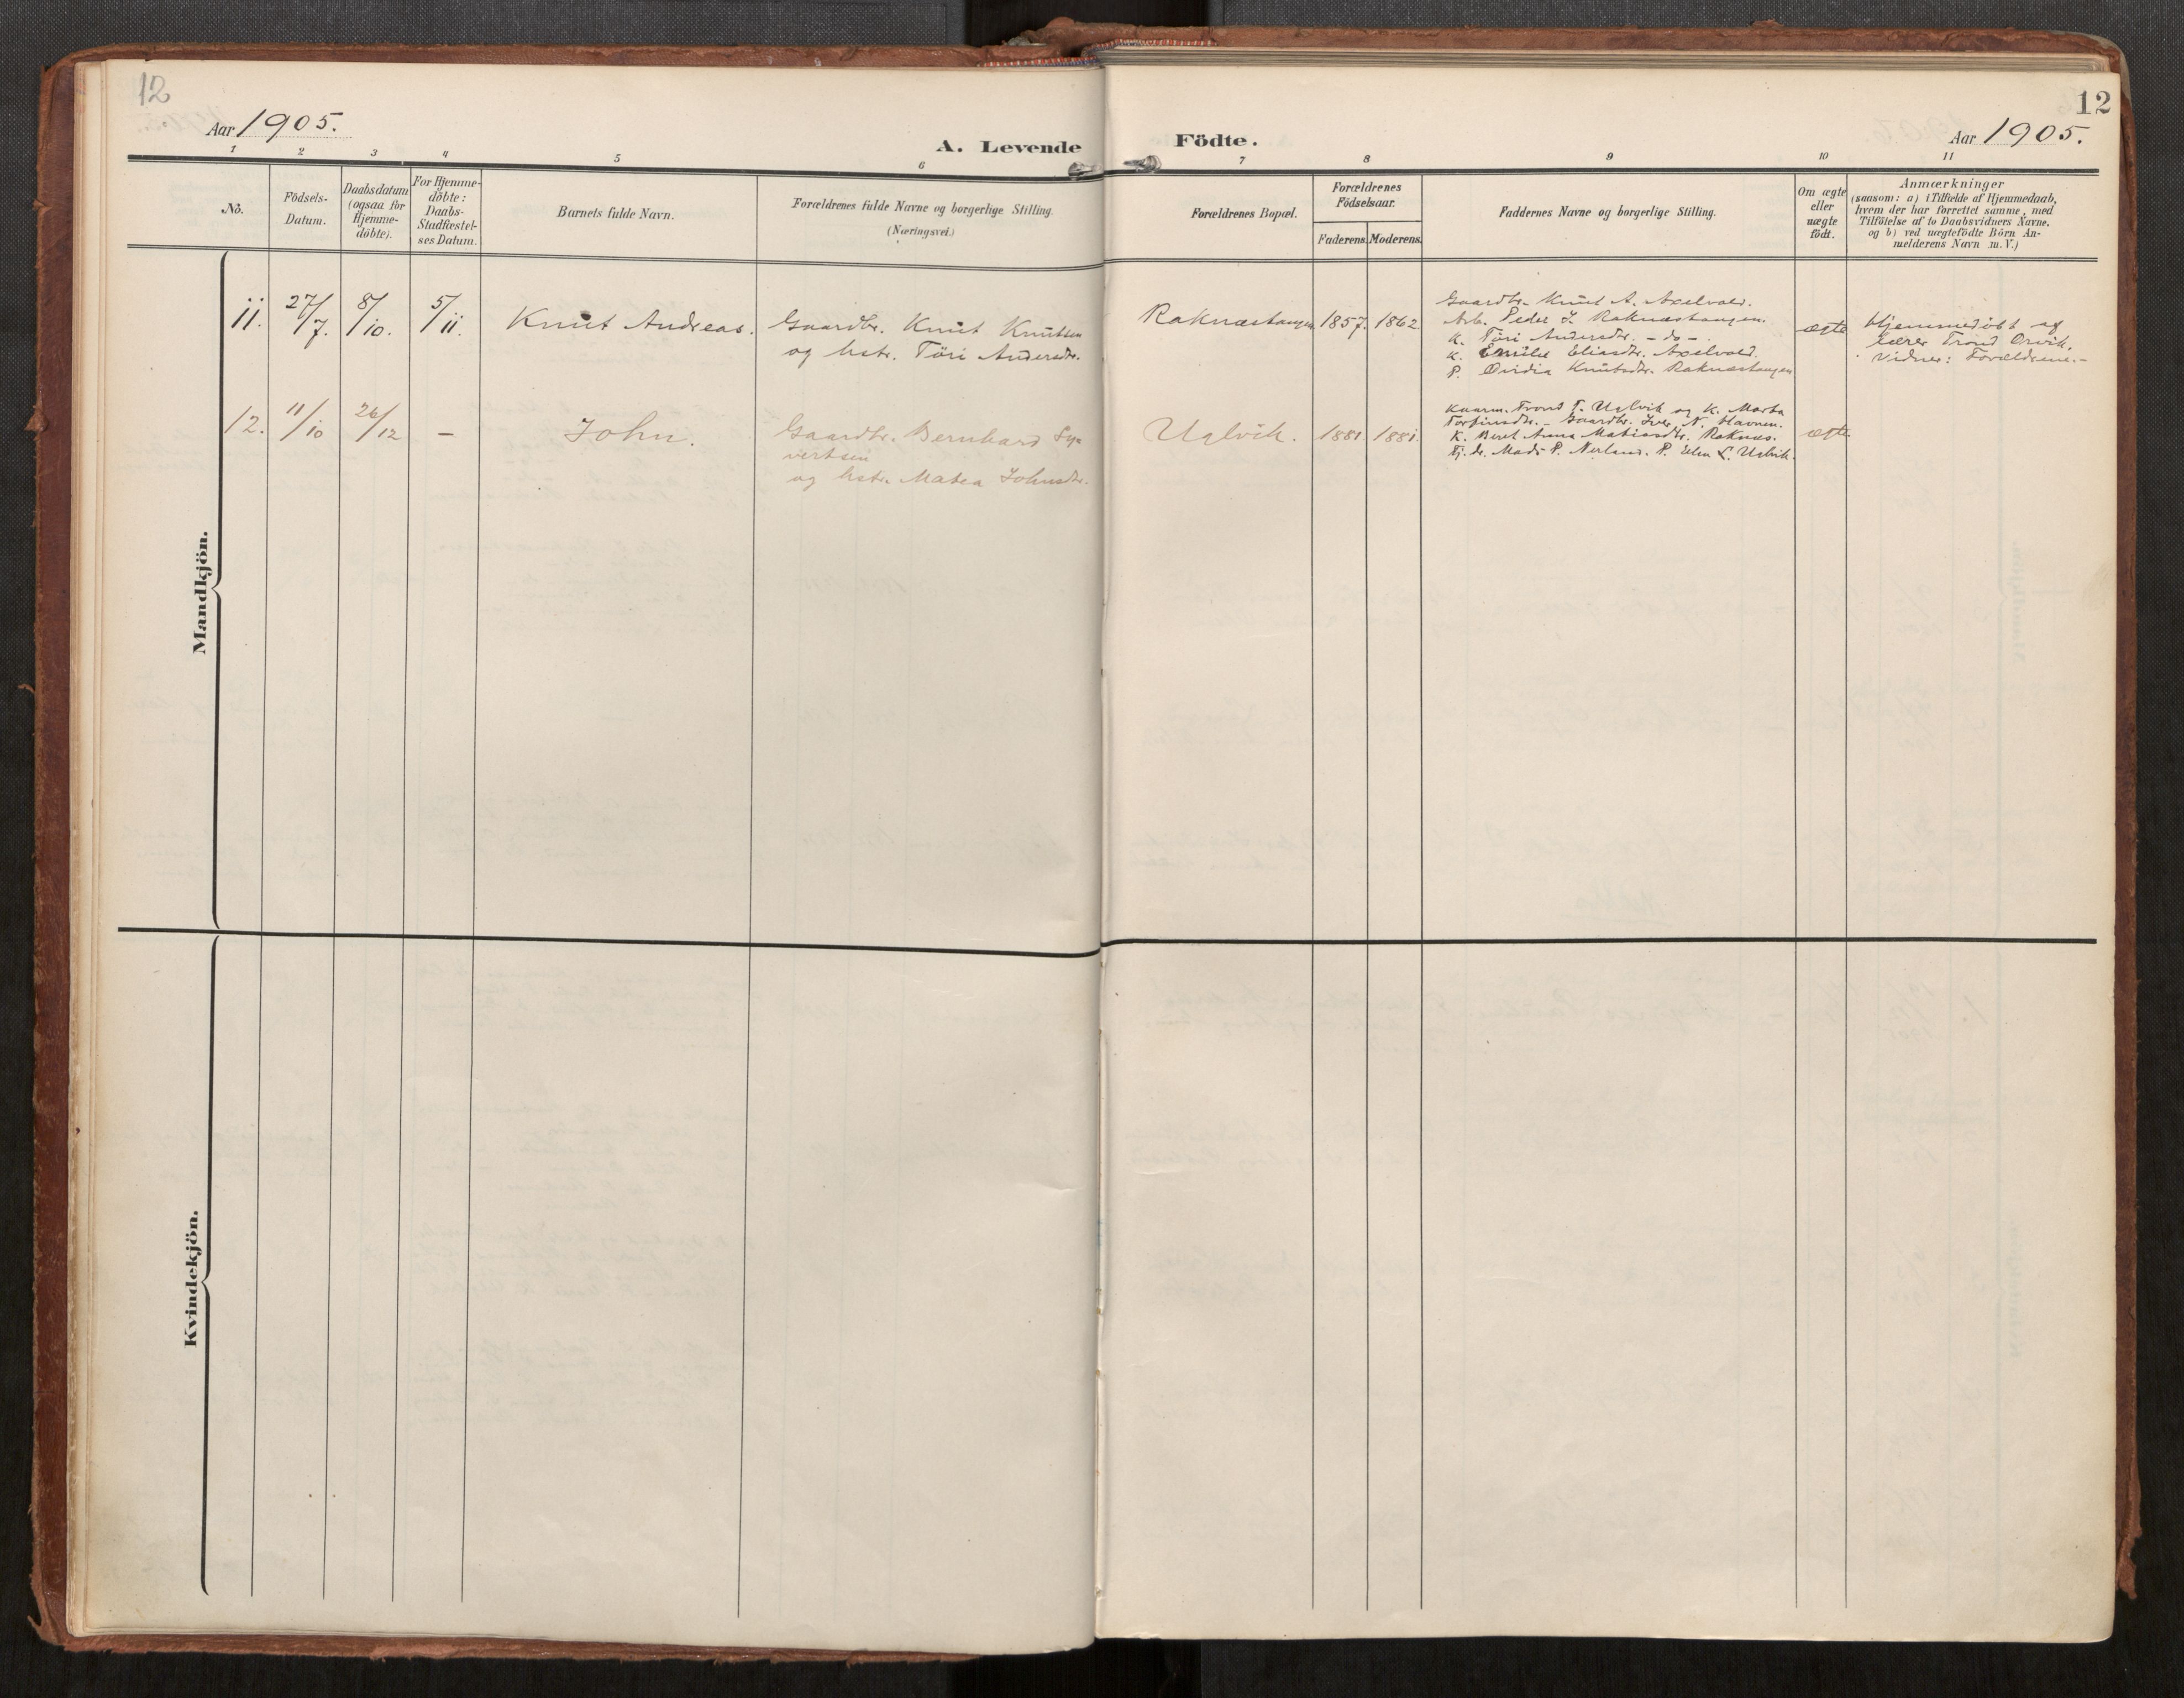 12
12
Aar 1905.
A. Levende Födte.
Aar 1905.
1 2 3 4 5 6 7 8 9 10 11
No.
Födsels-
Datum.
Daabsdatum
(ogsaa for
Hjemme-
döbte).
For Hjemme-
döbte:
Daabs-
Stadfæstel-
ses Datum.
Barnets fulde Navn.
Forældrenes fulde Navne og borgerlige Stilling.
(Næringsvei.)
Forældrenes Bopæl.
Forældrenes
Födselsaar.
Faderens. Moderens.
Faddernes Navne og borgerlige Stilling.
Om ægte
eller
uægte
födt.
Anmærkninger
(saasom: a) i Tilfælde af Hjemmedaab,
hvem der har forrettet samme, med
Tilföielse af to Daabsvidners Navne.
og b) ved uægtefödte Börn An-
melderens Navn m. V.)
Mandkjön.
11.
27/7.
8/10.
5/11.
Knut Andreas.
Gaardbr. Knut Knutsen
og hstr. Töri Andersdr.
Raknæstangen
1857. 1862.
Gaardbr. Knut A. Axelvold.
Arb. Peder J. Raknæstangen.
K. Töri Andersdr. - do -.
K. Emilie Eliasdr. Axelvold.
P. Ovidia Knutsdr. Raknæstangen
ægte
Hjemmedöbt af
lærer Trond Orvik.
Vidner: Forældrene.-
12.
11/10
26/12
-
John.
Gaardbr. Bernhard Sy-
vertsen
og hstr. Matea Johnsdr.
Uglvik.
1881. 1881.
Kaarm. Trond T. Uglvik og K. Marta
Torfinsdr. - Gaardbr. Iver N. Havnen.
K. Beret Anna Matiasdr. Raknæs.
Tj. dr. Mads P. Nerland. P. Elen L. Uglvik.
ægte.
Kvindekjön.